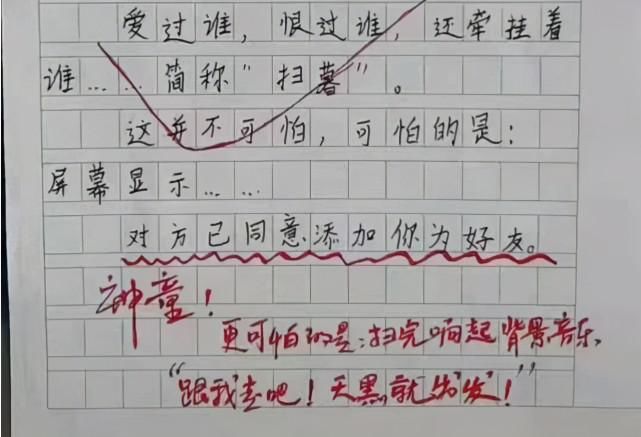 爱过谁，恨过谁，还牵挂着
谁……简称“扫暮”。
这并不可怕，可怕的是：
屏幕显示……
对方已同意添加你为好友。
神童！
更可怕的是：扫完响起背景音乐
“跟我走吧！天黑就出发！”